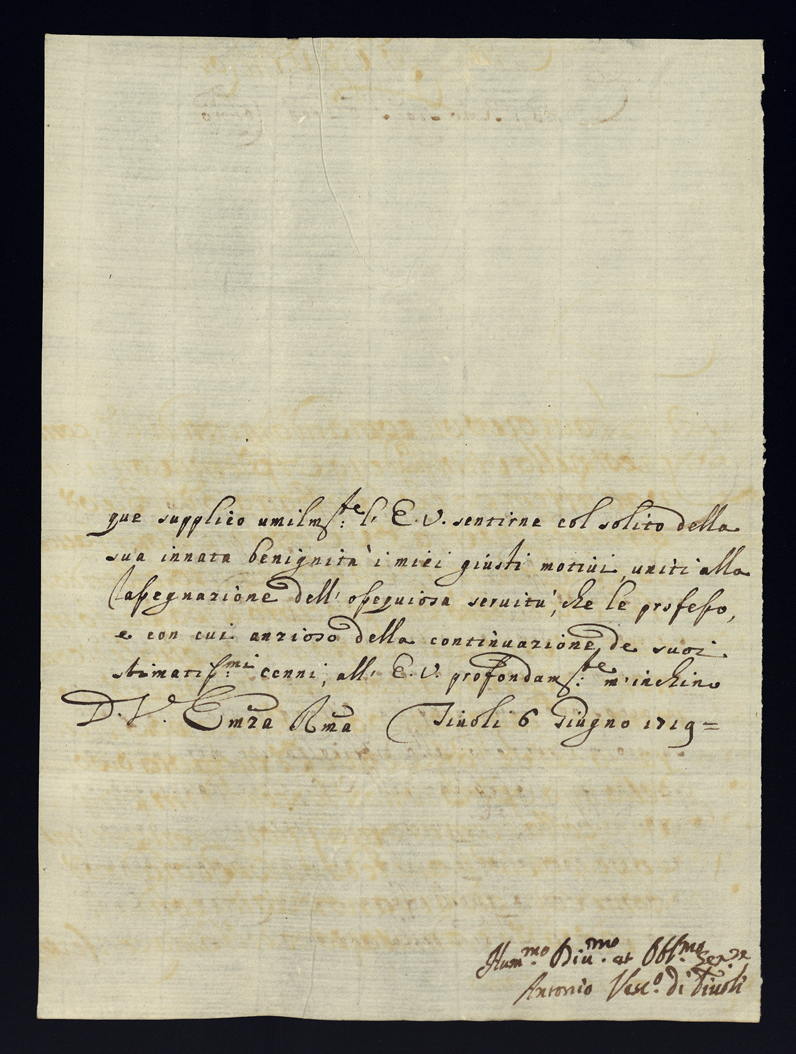 que supplico umilmste: l'E.V. sentirne col solito della
sua innata benignità i miei giusti motivi, uniti alla
rassegnazione dell'ossequiosa servitù, che le professo,
e con cui anzioso della continuazione de suoi
stimatiss:mi cenni, all'E.V. profondamste: m'inchino
D. V. Emza Rma Tivoli 6 Giugno 1719=
Hum.mo Diu.mo et Obl.mo
Antonio Vesc.o di Tivoli